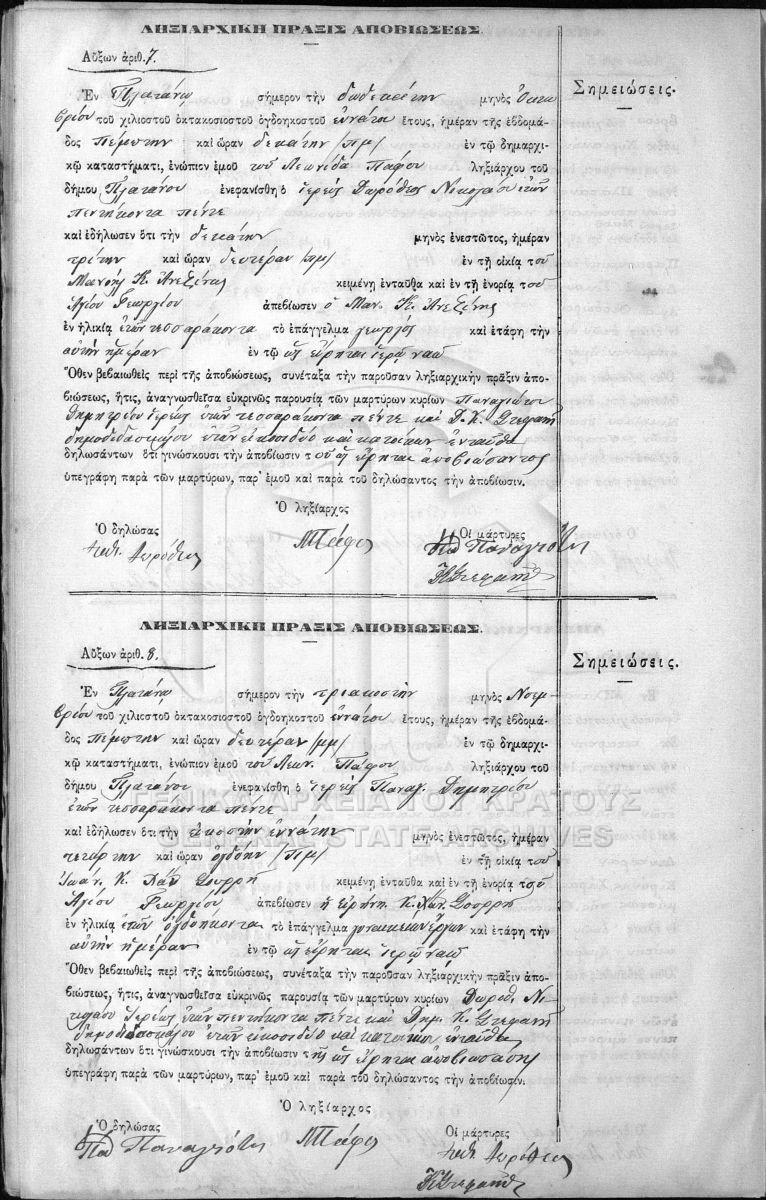 ΛΗΞΙΑΡΧΙΚΗ ΠΡΑΞΙΣ ΑΠΟΒΙΩΣΕΩΣ.
Αὔξων ἀριθ. 7.
Σημειώσεις.
Ἐν Πλατάνῳ σήμερον τὴν δωδεκάτην μηνὸς Ὀκτω
βρίου τοῦ χιλιοστοῦ ὀκτακοσιοστοῦ ὀγδοηκοστοῦ ἐννάτου ἔτους, ἡμέραν τῆς ἑβδομά-
δος πέμπτην καὶ ὥραν δεκάτην πμ/ ἐν τῷ δημαρχι-
κῷ καταστήματι, ἐνώπιον ἐμοῦ τοῦ Λεωνίδα Πάφου ληξιάρχου τοῦ
δήμου Πλατάνου ἐνεφανίσθη ὁ ἱερεὺς Δωρόθεος Νικολάου ἐτῶν
πεντήκοντα πέντε
καὶ ἐδήλωσεν ὅτι τὴν δεκάτην μηνὸς ἐνεστῶτος, ἡμέραν
τρίτην καὶ ὥραν δευτέραν /πμ/ ἐν τῇ οἰκίᾳ τοῦ
Μανόλη Κ. κειμένῃ ἐνταῦθα καὶ ἐν τῇ ἐνορίᾳ τοῦ
Ἁγίου Γεωργίου ἀπεβίωσεν ὁ Μαν. Κ.
ἐν ἡλικίᾳ ἐτῶν τεσσαράκοντα τὸ ἐπάγγελμα γεωργὸς καὶ ἐτάφη τὴν
αὐτὴν ἡμέραν ἐν τῷ ὡς εἴρηται ἱερῷ ναῷ
Ὅθεν βεβαιωθεὶς περὶ τῆς ἀποβιώσεως, συνέταξα τὴν παροῦσαν ληξιαρχικὴν πρᾶξιν ἀπο-
βιώσεως, ἥτις, ἀναγνωσθεῖσα εὐκρινῶς παρουσίᾳ τῶν μαρτύρων κυρίων Παναγιώτου
Δημητρίου ἱερέως ἐτῶν τεσσαράκοντα πέντε καὶ Δ. Κ. Στεφανῆ
δημοδιδασκάλου ἐτῶν εἰκοσιδύο καὶ κατοίκων ἐνταῦθα
δηλωσάντων ὅτι γινώσκουσι τὴν ἀποβίωσιν τοῦ ὡς εἴρηται ἀποβιώσαντος
ὑπεγράφη παρὰ τῶν μαρτύρων, παρ' ἐμοῦ καὶ παρὰ τοῦ δηλώσαντος τὴν ἀποβίωσιν.
Ὁ ληξίαρχος
Ὁ δηλώσας Οἱ μάρτυρες
ΛΠάφος Παπ Παναγιότις
ΔΚΣτεφανῆς
ΛΗΞΙΑΡΧΙΚΗ ΠΡΑΞΙΣ ΑΠΟΒΙΩΣΕΩΣ.
Αὔξων ἀριθ. 8.
Σημειώσεις.
Ἐν Πλατάνῳ σήμερον τὴν τριακοστὴν μηνὸς Νοεμ-
βρίου τοῦ χιλιοστοῦ ὀκτακοσιοστοῦ ὀγδοηκοστοῦ ἐννάτου ἔτους, ἡμέραν τῆς ἑβδομά-
δος πέμπτην καὶ ὥραν δευτέραν /μμ/ ἐν τῷ δημαρχι-
κῷ καταστήματι, ἐνώπιον ἐμοῦ τοῦ Λεων. Πάφου ληξιάρχου τοῦ
δήμου Πλατάνου ἐνεφανίσθη ὁ ἱερεὺς Παναγ. Δημητρίου
ἐτῶν τεσσαράκοντα πέντε
καὶ ἐδήλωσεν ὅτι τὴν εἰκοστὴν ἐννάτην μηνὸς ἐνεστῶτος, ἡμέραν
τετάρτην καὶ ὥραν ὀγδόην /πμ/ ἐν τῇ οἰκίᾳ τοῦ
Ἰωάν. Κ. κειμένῃ ἐνταῦθα καὶ ἐν τῇ ἐνορίᾳ τοῦ
Ἁγίου Γεωργίου ἀπεβίωσεν ἡ Εἰρήνη Κ.
ἐν ἡλικίᾳ ἐτῶν ὀγδοήκοντα τὸ ἐπάγγελμα γυναικείων ἔργων καὶ ἐτάφη τὴν
αὐτὴν ἡμέραν ἐν τῷ ὡς εἴρηται ἱερῷ ναῷ
Ὅθεν βεβαιωθεὶς περὶ τῆς ἀποβιώσεως, συνέταξα τὴν παροῦσαν ληξιαρχικὴν πρᾶξιν ἀπο-
βιώσεως, ἥτις, ἀναγνωσθεῖσα εὐκρινῶς παρουσίᾳ τῶν μαρτύρων κυρίων Δωροθ. Νι-
κολάου ἱερέως ἐτῶν πεντήκοντα πέντε καὶ Δημ. Κ. Στεφανῆ
δημοδιδασκάλου ἐτῶν εἰκοσιδύο καὶ κατοίκων ἐνταῦθα
δηλωσάντων ὅτι γινώσκουσι τὴν ἀποβίωσιν τῆς ὡς εἴρηται ἀποβιωσάσης
ὑπεγράφη παρὰ τῶν μαρτύρων, παρ' ἐμοῦ καὶ παρὰ τοῦ δηλώσαντος τὴν ἀποβίωσιν.
Ὁ ληξίαρχος
Ὁ δηλώσας Οἱ μάρτυρες
Παπ Παναγιότις ΛΠάφος
ΔΚΣτεφανῆς
ΓΕΝΙΚΑ ΑΡΧΕΙΑ ΤΟΥ ΚΡΑΤΟΥΣ
GENERAL STATE ARCHIVES